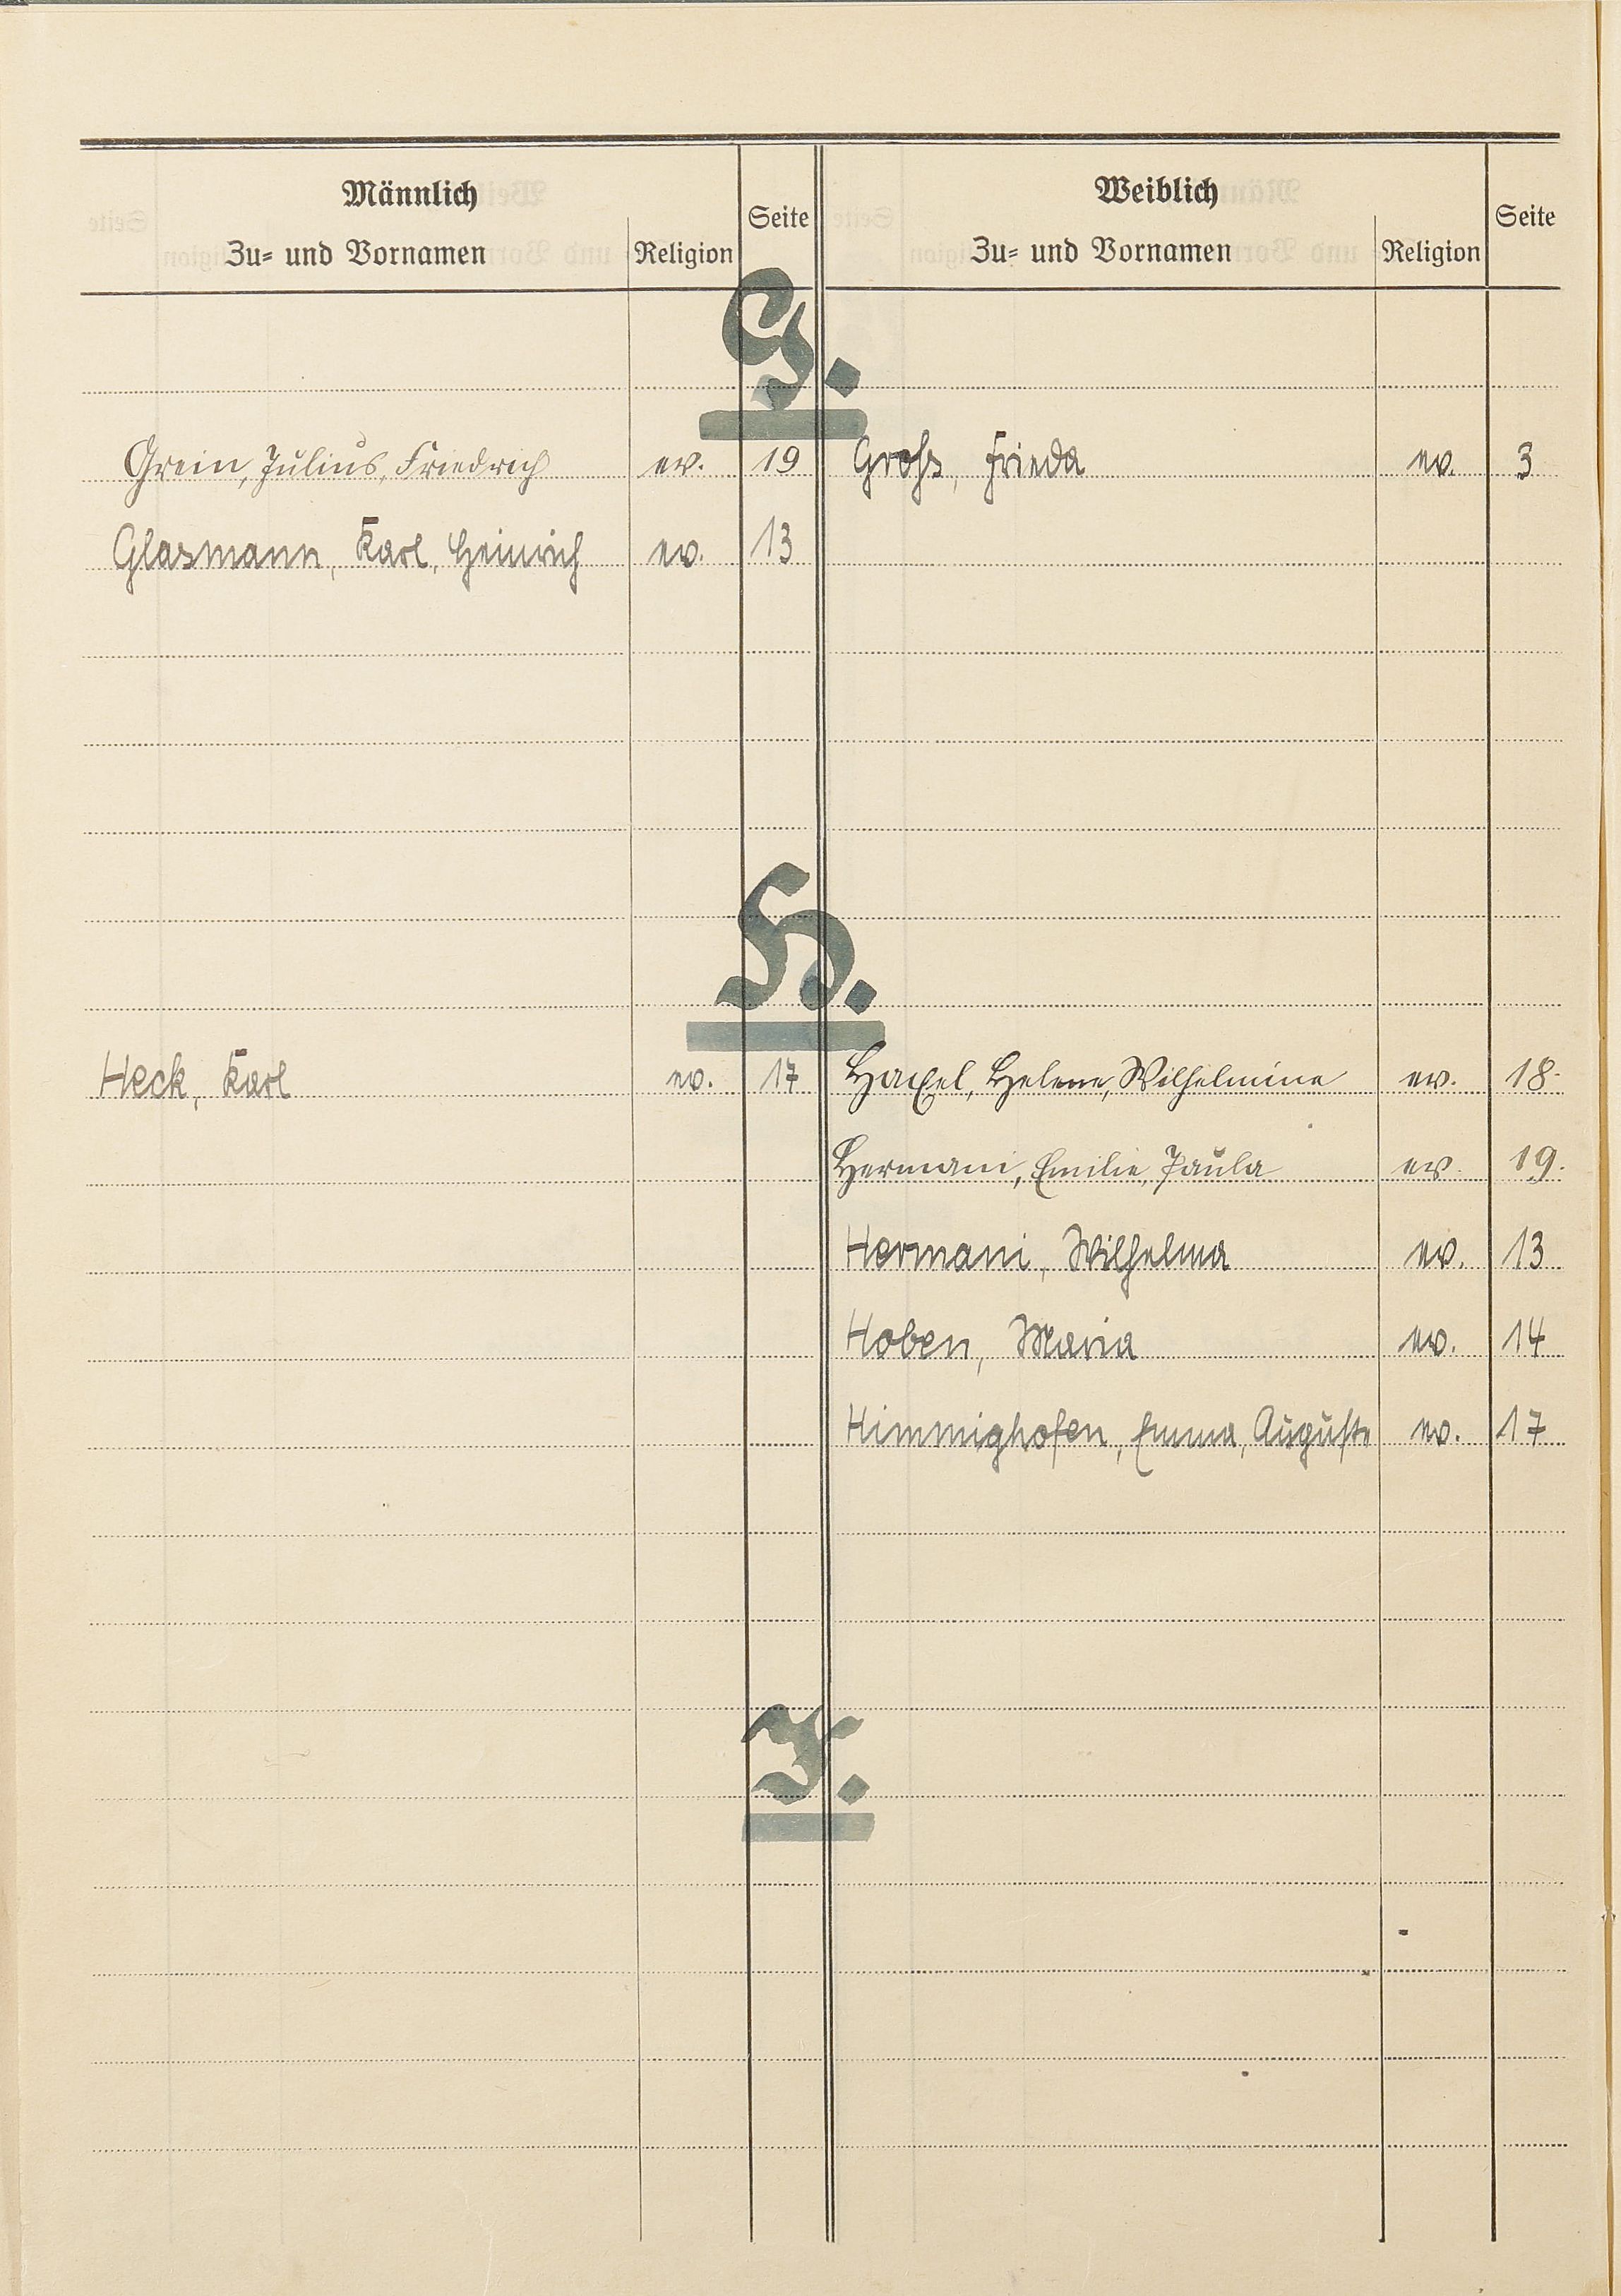 Männlich Weiblich
Zu- und Vornamen Religion Seite Zu- und Vornamen Religion Seite
G.
Grein, Julius, Friedrich ev. 19 Groß, Frieda ev. 3
Glasmann, Karl, Heinrich ev. 13
H.
Heck, Karl ev. 17 Helene, Wilhelmine ev. 18.
Hermani, Emilie, Paula ev. 19.
Hermani, Wilhelma ev. 13
Hoben, Maria ev. 14
Himmighofen, Emma, Auguste ev. 17
I.